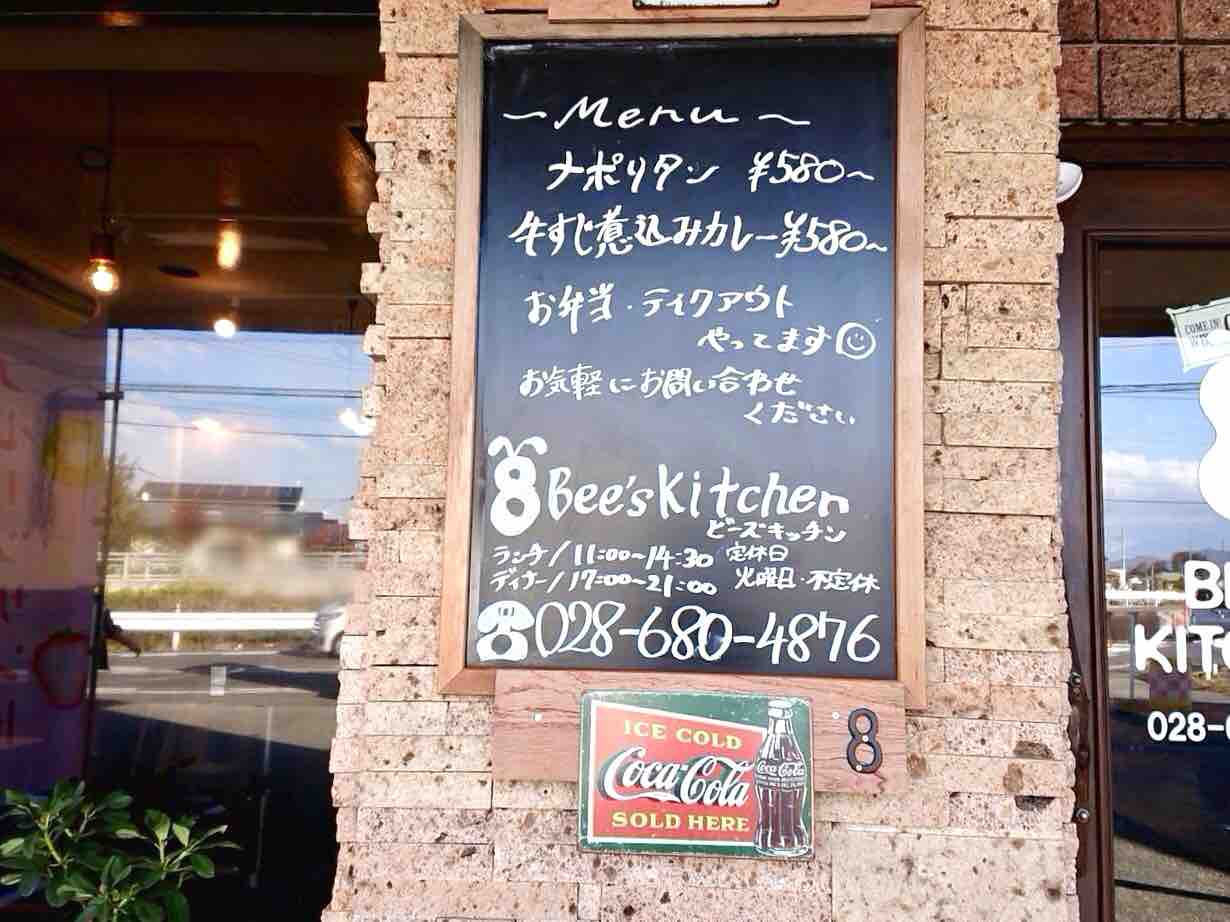 ~Menu~
ナポリタン ¥580~
牛すじ煮込みカレー¥580~
お弁当・テイクアウト
やってます
お気軽にお問い合わせ
ください
8 Bee's Kitchen
ビーズキッチン
ランチ/11:00~14:30 定休日
ディナー/17:00~21:00 火曜日・不定休
028-680-4876
ICE COLD
Coca-Cola
SOLD HERE
Coca-Cola
8
COME IN
028-